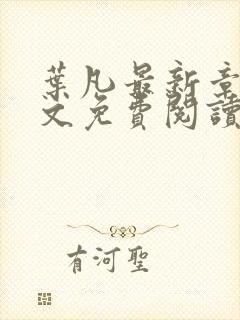 葉凡最新章
文免費閱讀
有河聖